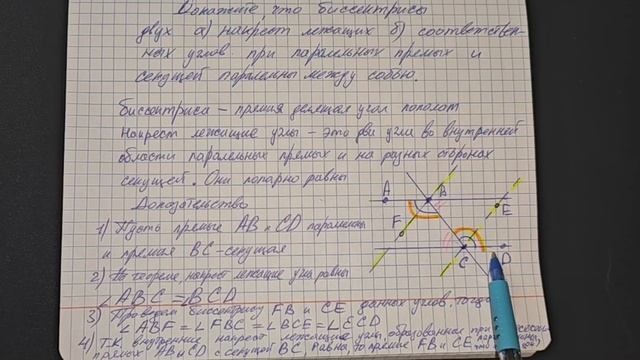 Докажите что биссектрисы
двух а) накрест лежащих б) соответствен-
ных углов при паралельных прямых и
секущей паралельны между собою.
биссектриса – прямая делящая угол пополам
Накрест лежащие углы – это два угла во внутренней
области паралельных прямых и на разных сторонах
секущей. Они попарно равны
Доказательство
1) Пусть прямые AB и CD паралельны
и прямая BC – секущая
2) По теореме, накрест лежащие углы равны
∠ABC = ∠BCD
3) Проведем биссектрису FB и CE данных углов, тогда
∠ABF = ∠FBC = ∠BCE = ∠ECD
4) Т.К. внутренние накрест лежащие углы, образованные при
прямых AB и CD с секущей BC, равны то прямые FB и CE
A B
F E
C D